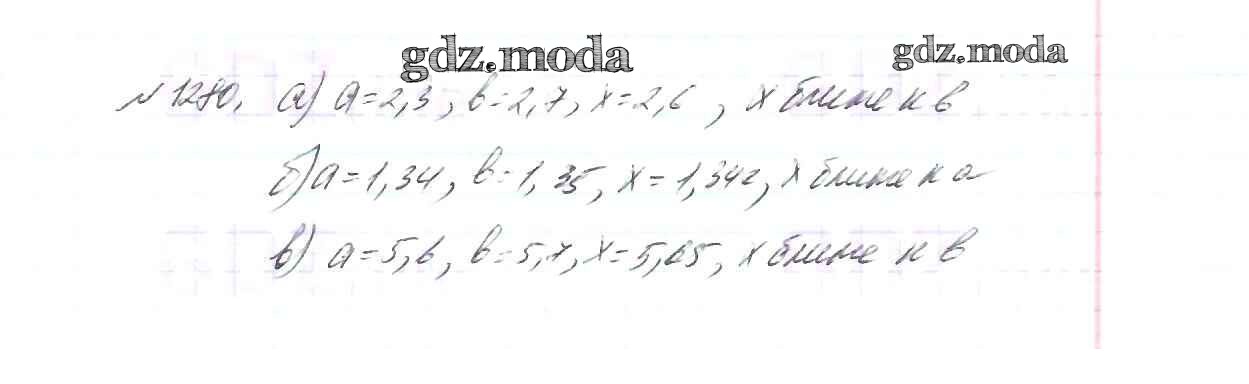 gdz.moda gdz.moda
№1280. а) а=2,3, в=2,7, х=2,6, х ближе к в
б) а=1,34, в=1,35, х=1,342, х ближе к а
в) а=5,6, в=5,7, х=5,65, х ближе к в